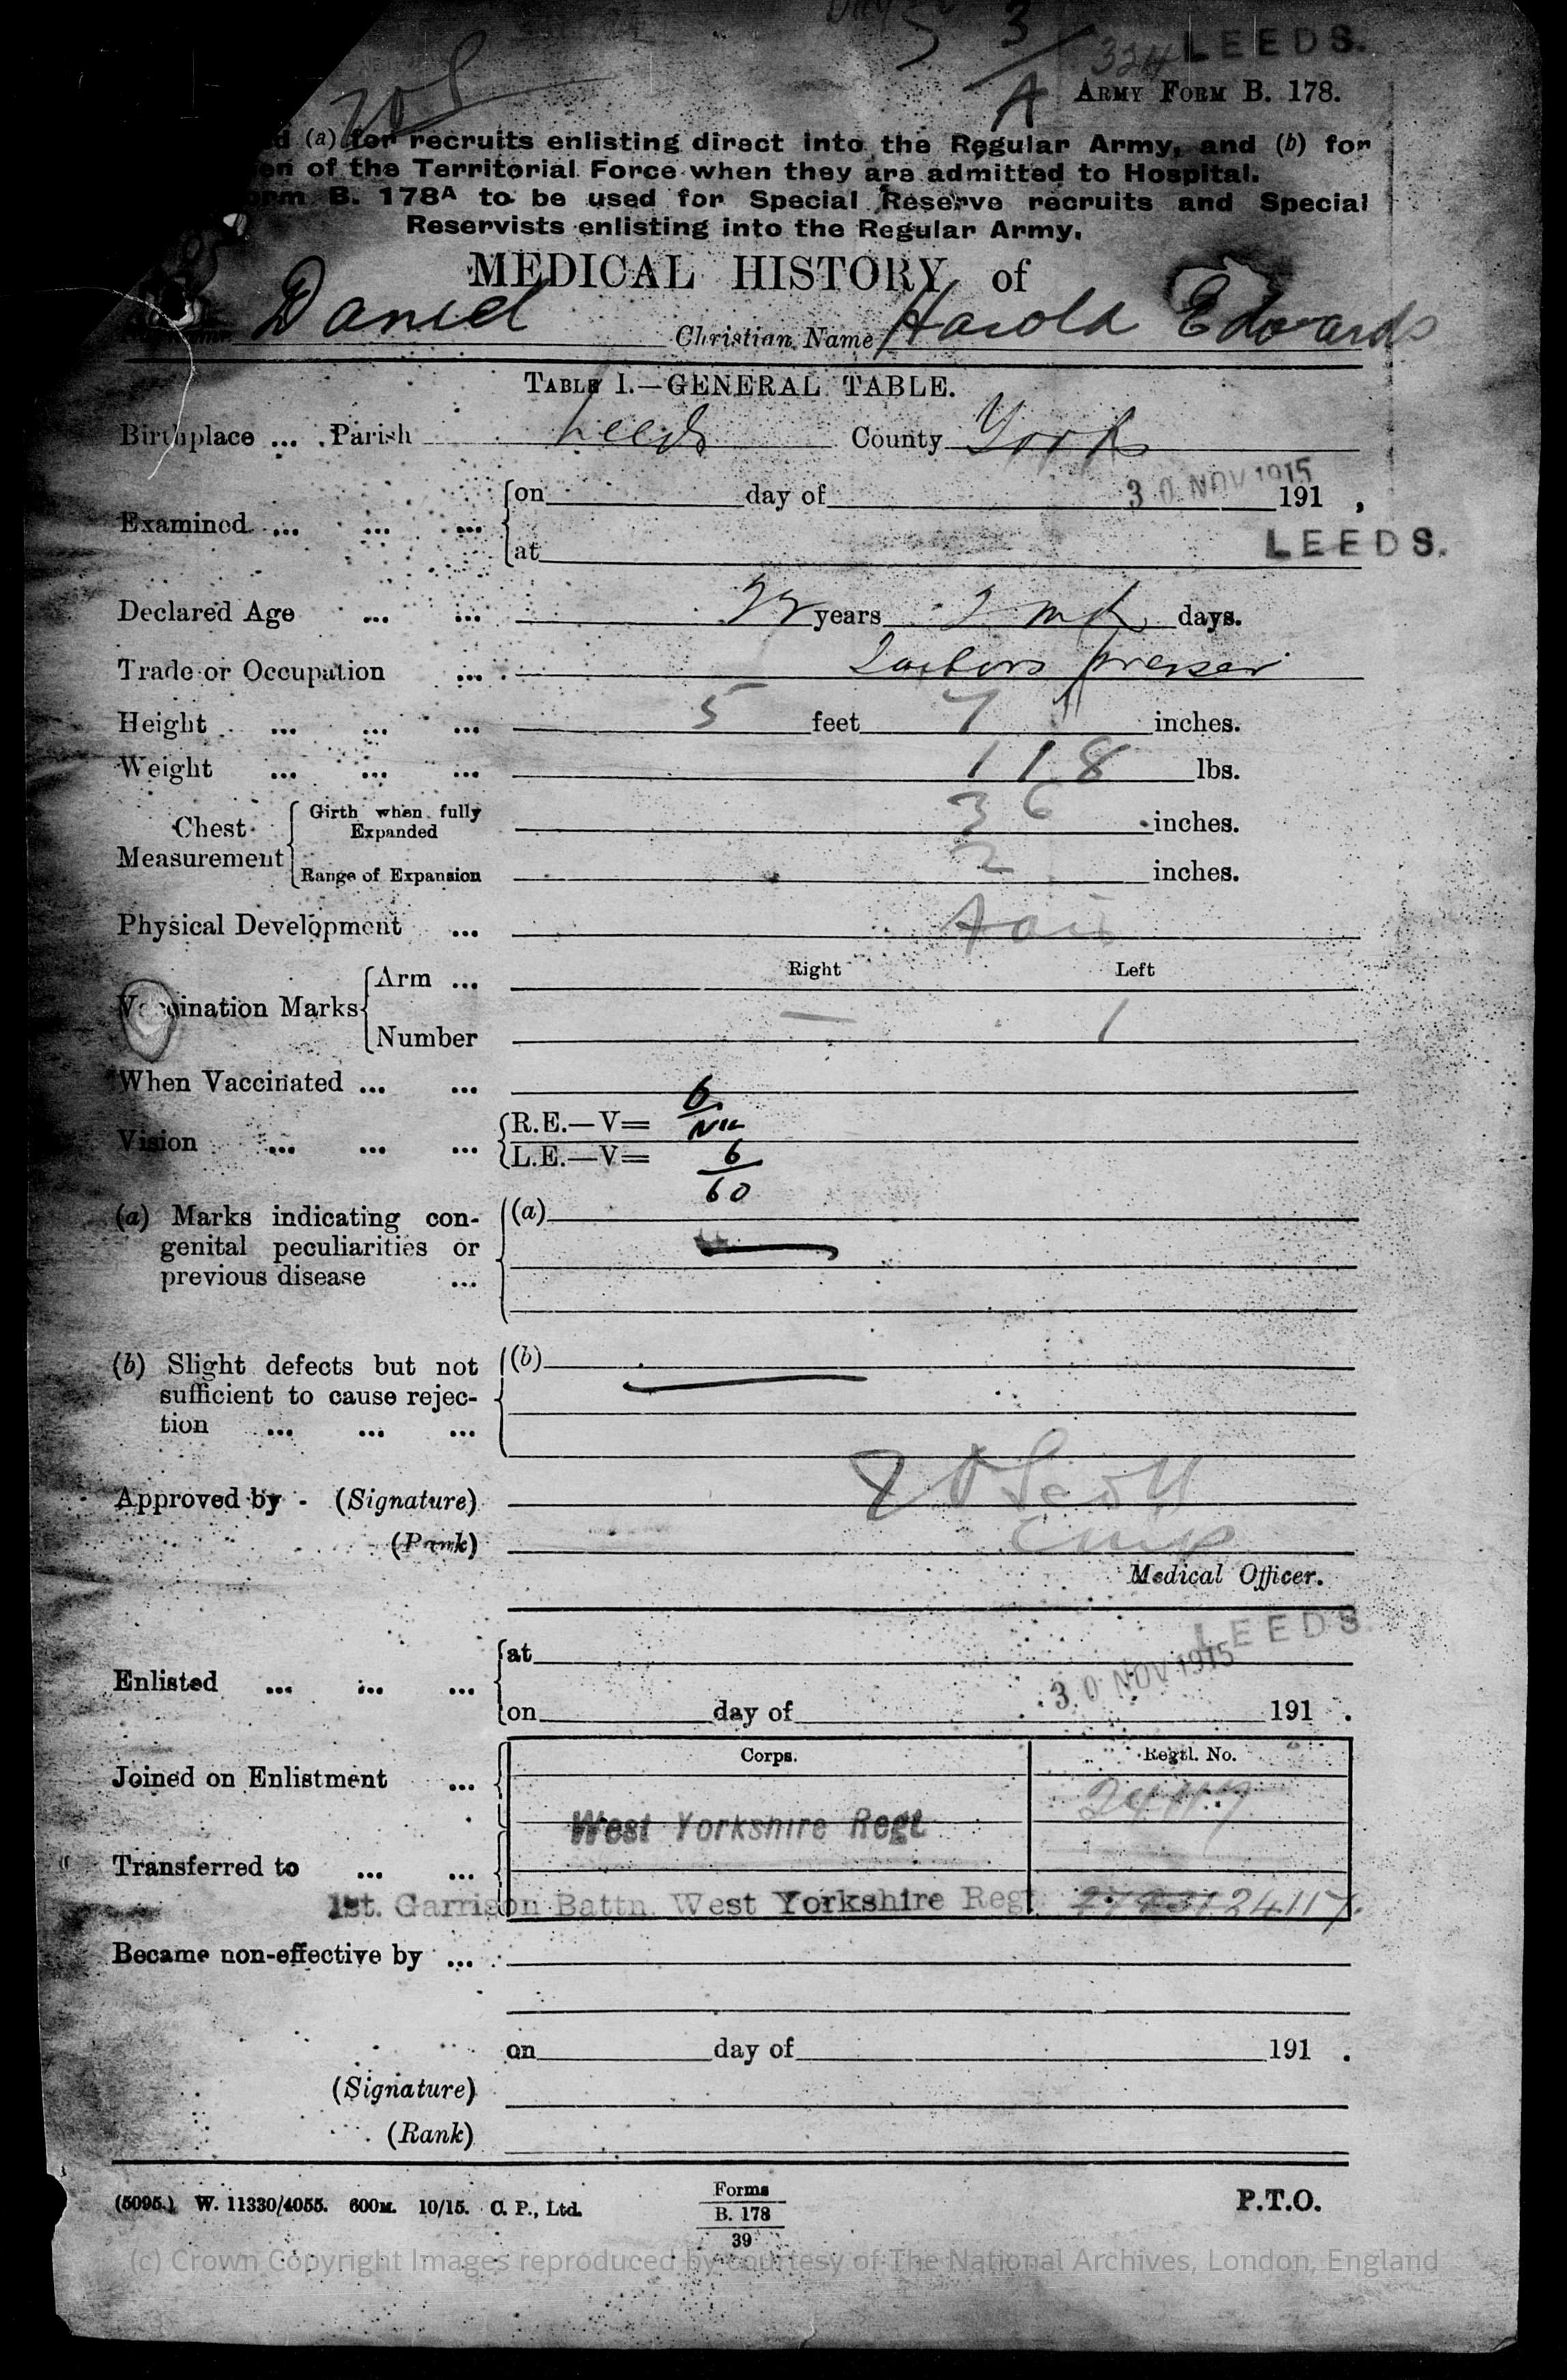 3/A 324 LEEDS.
ARMY FORM B. 178.
(a) for recruits enlisting direct into the Regular Army, and (b) for
of the Territorial Force when they are admitted to Hospital.
B. 178A to be used for Special Reserve recruits and Special
Reservists enlisting into the Regular Army.
MEDICAL HISTORY of
Daniel Christian Name Harold Edwards
TABLE I.—GENERAL TABLE.
Birthplace ... Parish Leeds County York
Examined ... ... ... on day of 30 NOV 1915 191 ,
at LEEDS.
Declared Age ... ... years 2 mth days.
Trade or Occupation ... presser
Height ... ... ... 5 feet 7 inches.
Weight ... ... ... 118 lbs.
Chest Measurement Girth when fully Expanded 36 inches.
Range of Expansion 2 inches.
Physical Development ... Fair
Right Left
Vaccination Marks Arm ...
Number — 1
When Vaccinated ... ...
Vision ... ... ... R.E.—V= 6/Nil
L.E.—V= 6/60
(a) Marks indicating con- (a)
genital peculiarities or
previous disease ...
(b) Slight defects but not (b)
sufficient to cause rejec-
tion ... ... ...
Approved by - (Signature) Scott
(Rank)
Medical Officer.
Enlisted ... ... ... at LEEDS
on day of 30 NOV 1915 191 .
Corps. Regtl. No.
Joined on Enlistment ... 24117
West Yorkshire Regt
Transferred to ... ...
1st. Garrison Battn. West Yorkshire Regt 24117.
Became non-effective by ...
on day of 191 .
(Signature)
(Rank)
(5095.) W. 11330/4055. 600M. 10/15. C. P., Ltd. Forms P.T.O.
B. 178
39
(c) Crown Copyright Images reproduced by courtesy of The National Archives, London, England